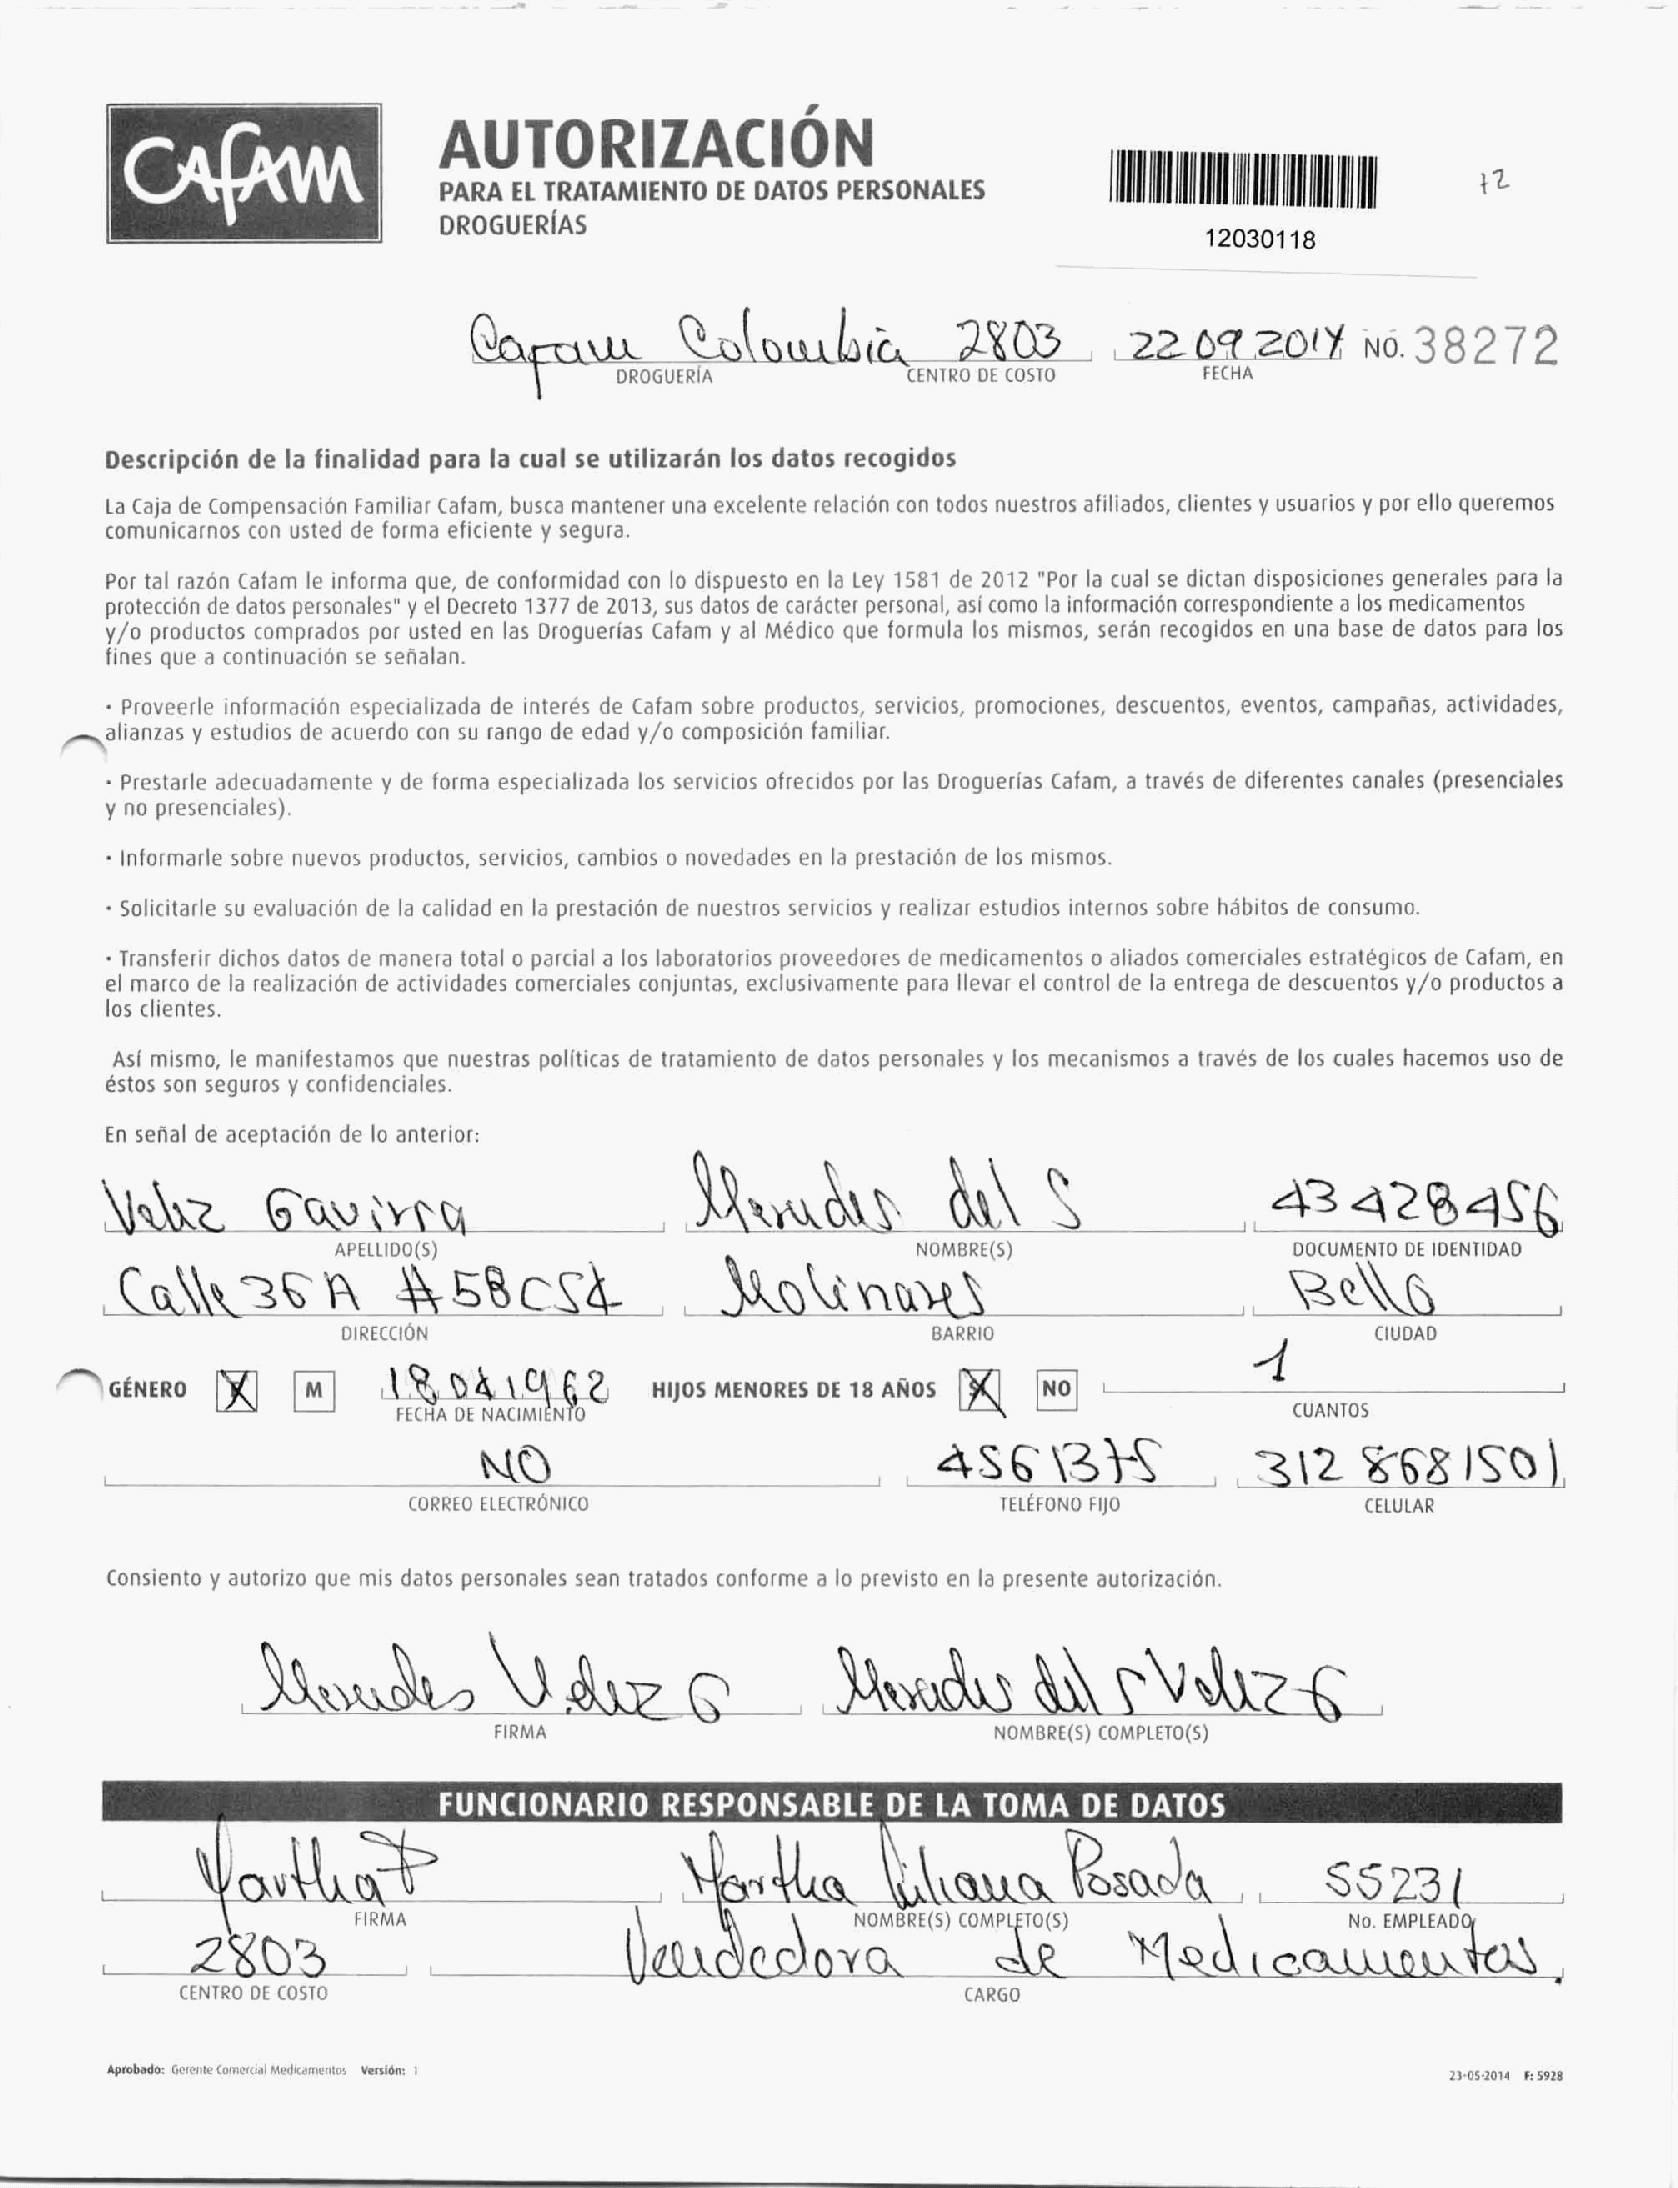 CAFAM
AUTORIZACIÓN
PARA EL TRATAMIENTO DE DATOS PERSONALES
DROGUERÍAS
12030118
72
Cafam Colombia 2803 22 09 2014 NO. 38272
DROGUERÍA CENTRO DE COSTO FECHA
Descripción de la finalidad para la cual se utilizarán los datos recogidos
La Caja de Compensación Familiar Cafam, busca mantener una excelente relación con todos nuestros afiliados, clientes y usuarios y por ello queremos
comunicarnos con usted de forma eficiente y segura.
Por tal razón Cafam le informa que, de conformidad con lo dispuesto en la Ley 1581 de 2012 "Por la cual se dictan disposiciones generales para la
protección de datos personales" y el Decreto 1377 de 2013, sus datos de carácter personal, así como la información correspondiente a los medicamentos
y/o productos comprados por usted en las Droguerías Cafam y al Médico que formula los mismos, serán recogidos en una base de datos para los
fines que a continuación se señalan.
· Proveerle información especializada de interés de Cafam sobre productos, servicios, promociones, descuentos, eventos, campañas, actividades,
alianzas y estudios de acuerdo con su rango de edad y/o composición familiar.
· Prestarle adecuadamente y de forma especializada los servicios ofrecidos por las Droguerías Cafam, a través de diferentes canales (presenciales
y no presenciales).
· Informarle sobre nuevos productos, servicios, cambios o novedades en la prestación de los mismos.
· Solicitarle su evaluación de la calidad en la prestación de nuestros servicios y realizar estudios internos sobre hábitos de consumo.
· Transferir dichos datos de manera total o parcial a los laboratorios proveedores de medicamentos o aliados comerciales estratégicos de Cafam, en
el marco de la realización de actividades comerciales conjuntas, exclusivamente para llevar el control de la entrega de descuentos y/o productos a
los clientes.
Así mismo, le manifestamos que nuestras políticas de tratamiento de datos personales y los mecanismos a través de los cuales hacemos uso de
éstos son seguros y confidenciales.
En señal de aceptación de lo anterior:
Velez Gavirra Mercedes del S 43428456
APELLIDO(S) NOMBRE(S) DOCUMENTO DE IDENTIDAD
Calle 36 A # 58C54 Molinares Bello
DIRECCIÓN BARRIO CIUDAD
GÉNERO X M 18 04 1962 HIJOS MENORES DE 18 AÑOS X NO 1
FECHA DE NACIMIENTO CUANTOS
NO 4561375 312 8681501
CORREO ELECTRÓNICO TELÉFONO FIJO CELULAR
Consiento y autorizo que mis datos personales sean tratados conforme a lo previsto en la presente autorización.
Mercedes Velez G Mercedes del S Velez G
FIRMA NOMBRE(S) COMPLETO(S)
FUNCIONARIO RESPONSABLE DE LA TOMA DE DATOS
Martha P Martha Liliana Posada 55231
FIRMA NOMBRE(S) COMPLETO(S) No. EMPLEADO
2803 Vendedora de Medicamentos.
CENTRO DE COSTO CARGO
Aprobado: Gerente Comercial Medicamentos Versión: 1 23-05-2014 F: 5928